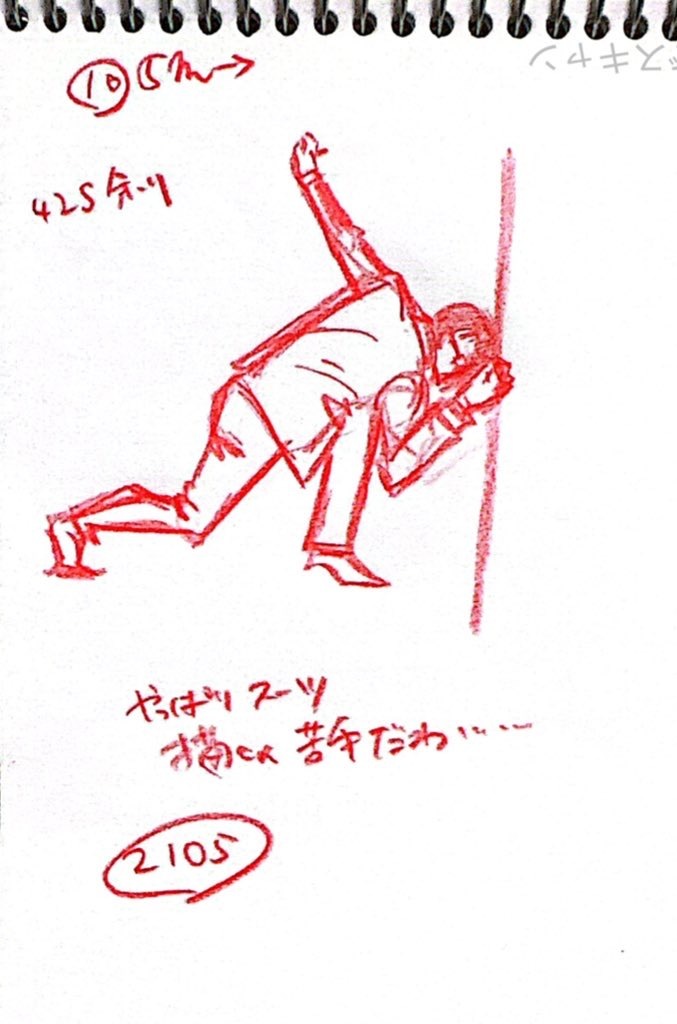 ⑩ 5m→
425
やっぱり スーツ
描くの 苦手だわ……
2105